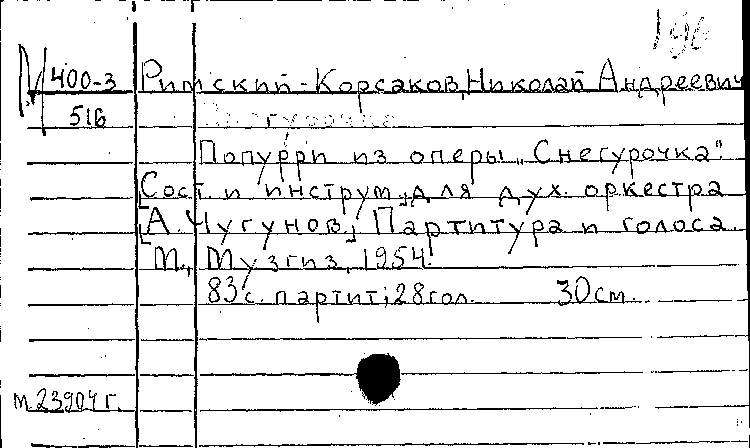 196
М 400-3 Римский-Корсаков, Николай Андреевич
516 Снегурочка
Попурри из оперы „Снегурочка".
[Сост. и инструм.] для дух. оркестра
[А. Чугунов.] Партитура и голоса.
М., Музгиз, 1954.
83 с. партит; 28 гол. 30 см.
м 23904 г.